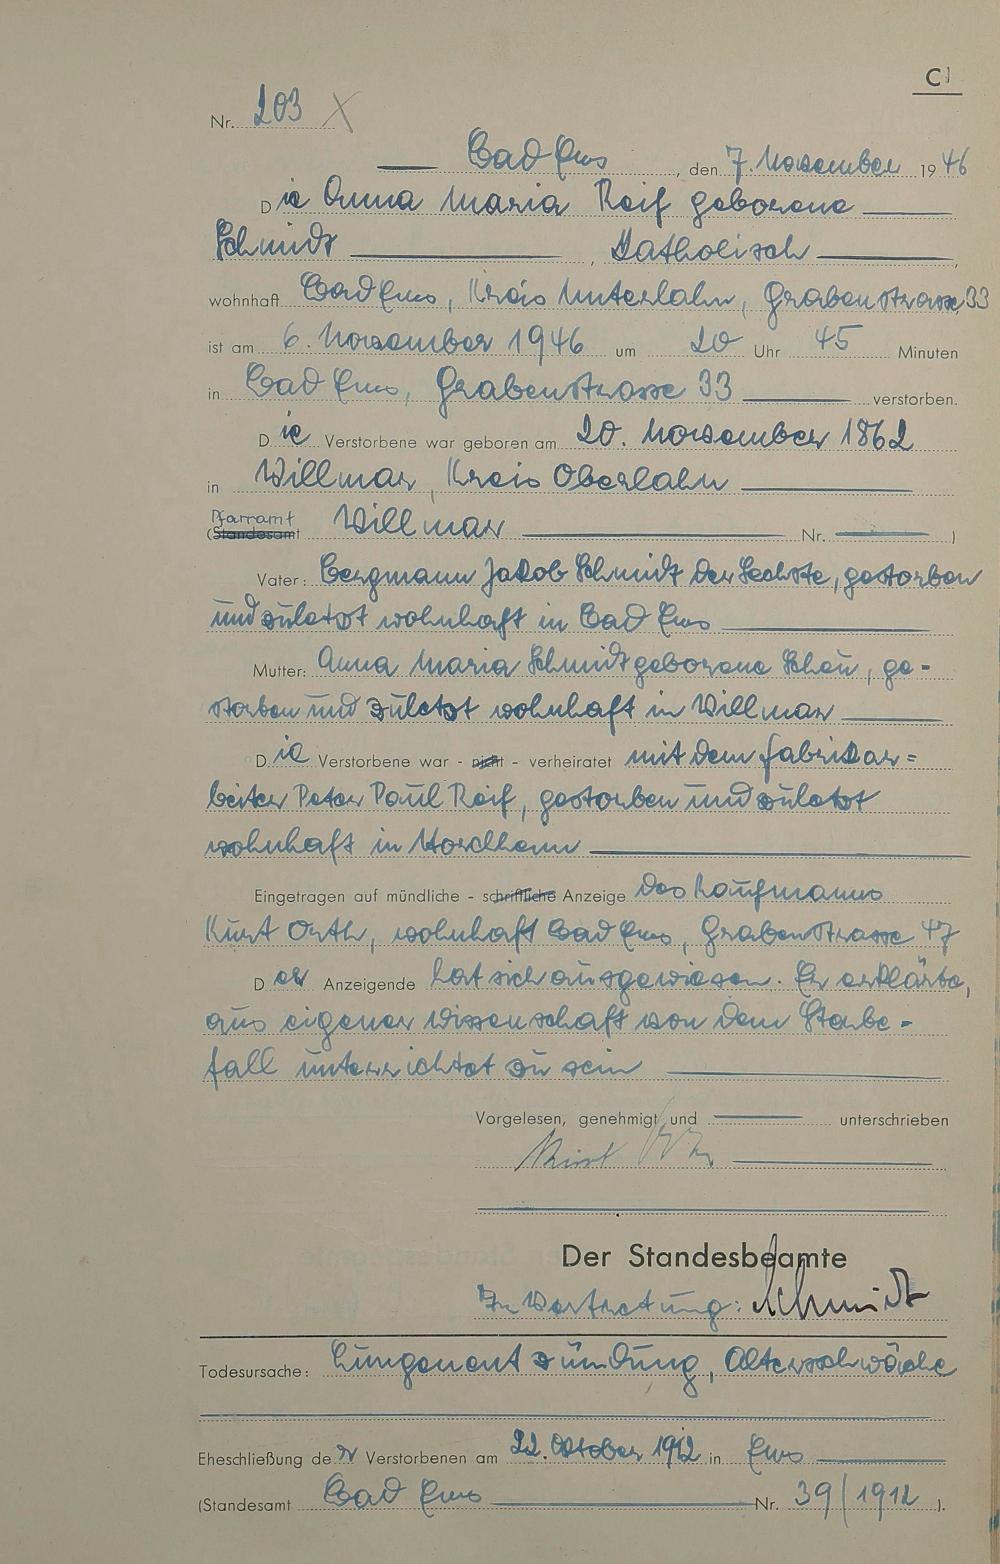 C
Nr. 203 X
Bad Ems, den 7. November 1946
Die Anna Maria Reif geborene
Schmidt, Katholisch,
wohnhaft Bad Ems, Kreis Unterlahn, Grabenstrasse 33
ist am 6. November 1946 um 20 Uhr 45 Minuten
in Bad Ems, Grabenstrasse 33 verstorben.
Die Verstorbene war geboren am 20. November 1862
in Villmar, Kreis Oberlahn
Pfarramt
(Standesamt Villmar Nr. )
Vater: Bergmann Jakob Schmidt der Sechste, gestorben
und zuletzt wohnhaft in Bad Ems
Mutter: Anna Maria Schmidt geborene Scheu, ge-
storben und zuletzt wohnhaft in Villmar
Die Verstorbene war - nicht - verheiratet mit dem Fabrikar=
beiter Peter Paul Reif, gestorben und zuletzt
wohnhaft in
Eingetragen auf mündliche - schriftliche Anzeige des Kaufmanns
Kurt Orth, wohnhaft Bad Ems, Grabenstrasse 47
Der Anzeigende hat sich ausgewiesen. Er erklärte,
aus eigener Wissenschaft von dem Sterbe-
fall unterrichtet zu sein
Vorgelesen, genehmigt und unterschrieben
Kurt Orth
Der Standesbeamte
In Vertretung: Schmidt
Todesursache: Lungenentzündung, Altersschwäche
Eheschließung der Verstorbenen am 22. Oktober 1912 in Ems
(Standesamt Bad Ems Nr. 39/1912 ).